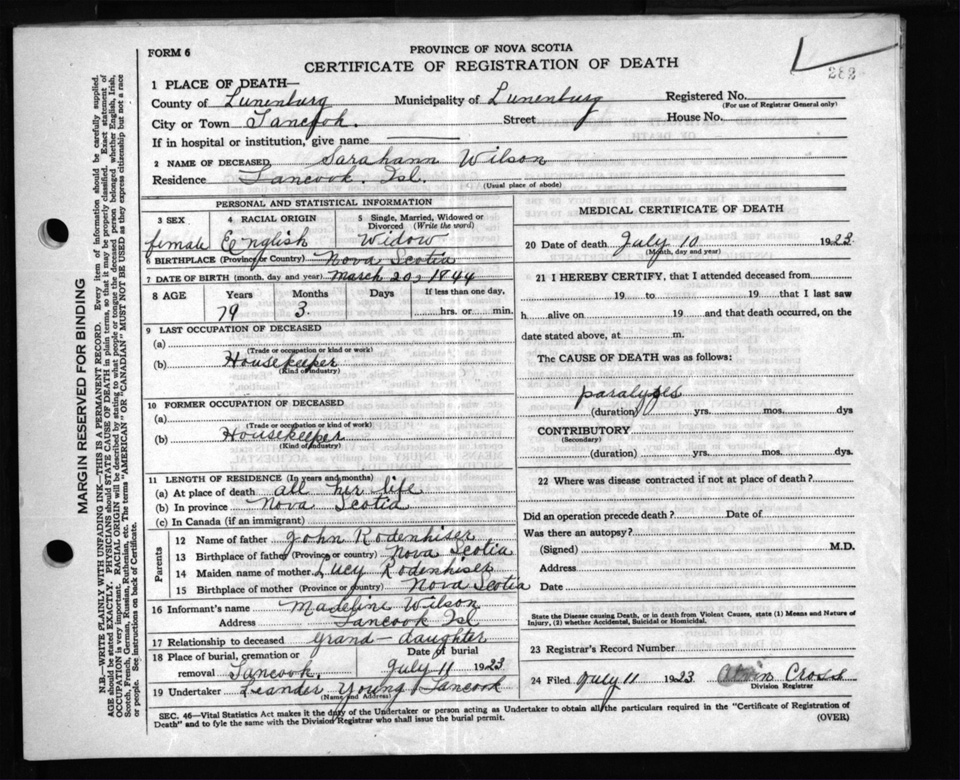 FORM 6
PROVINCE OF NOVA SCOTIA
CERTIFICATE OF REGISTRATION OF DEATH
282
1 PLACE OF DEATH—
County of Lunenburg Municipality of Lunenburg Registered No.
(For use of Registrar General only)
City or Town Tancook. Street House No.
If in hospital or institution, give name
2 NAME OF DECEASED, Sarahann Wilson
Residence Tancook, Isl.
(Usual place of abode)
PERSONAL AND STATISTICAL INFORMATION
3 SEX 4 RACIAL ORIGIN 5 Single, Married, Widowed or Divorced (Write the word)
female English Widow
6 BIRTHPLACE (Province or Country) Nova Scotia
7 DATE OF BIRTH (month, day and year) March 20, 1844
8 AGE Years Months Days If less than one day,
79 3. hrs. or min.
9 LAST OCCUPATION OF DECEASED
(a)
(Trade or occupation or kind or work)
(b) Housekeeper
(Kind of industry)
10 FORMER OCCUPATION OF DECEASED
(a)
(Trade or occupation or kind of work)
(b) Housekeeper
(Kind of Industry)
11 LENGTH OF RESIDENCE (In years and months)
(a) At place of death all her life
(b) In province Nova Scotia
(c) In Canada (if an immigrant)
Parents
12 Name of father John Rodenhiser
13 Birthplace of father (Province or country) Nova Scotia
14 Maiden name of mother Lucy Rodenhiser
15 Birthplace of mother (Province or country) Nova Scotia
16 Informant's name Madeline Wilson
Address Tancook Isl
17 Relationship to deceased grand-daughter
18 Place of burial, cremation or removal Tancook. Date of burial July 11 1923
19 Undertaker Leander Young Tancook
(Name and Address)
MEDICAL CERTIFICATE OF DEATH
20 Date of death July 10 1923.
(Month, day and year)
21 I HEREBY CERTIFY, that I attended deceased from
19 to 19 that I last saw
h alive on 19 and that death occurred, on
date stated above, at m.
The CAUSE OF DEATH was as follows:
paralyses
(duration) yrs. mos. dys
CONTRIBUTORY
(Secondary)
(duration) yrs. mos. dys.
22 Where was disease contracted if not at place of death?
Did an operation precede death? Date of
Was there an autopsy?
(Signed) M.D.
Address
Date
State the Disease causing Death, or in death from Violent Causes, state (1) Means and Nature of
Injury, (2) whether Accidental, Suicidal or Homicidal.
23 Registrar's Record Number
24 Filed July 11 1923 Cross
Division Registrar
SEC. 46—Vital Statistics Act makes it the duty of the Undertaker or person acting as Undertaker to obtain all the particulars required in the "Certificate of Registration of
Death" and to fyle the same with the Division Registrar who shall issue the burial permit.
(OVER)
MARGIN RESERVED FOR BINDING
N.B.—WRITE PLAINLY WITH UNFADING INK—THIS IS A PERMANENT RECORD. Every item of information should be carefully supplied.
AGE should be stated EXACTLY. PHYSICIANS should STATE CAUSE OF DEATH in plain terms, so that it may be properly classified. Exact statement of
OCCUPATION is very important. RACIAL ORIGIN will be described by stating to what people or tongue the deceased person belonged whether English, Irish,
Scotch, French, German, Russian, Ruthenian, etc. The terms "AMERICAN" OR "CANADIAN" MUST NOT BE USED as they express citizenship but not a race
or people. See instructions on back of Certificate.